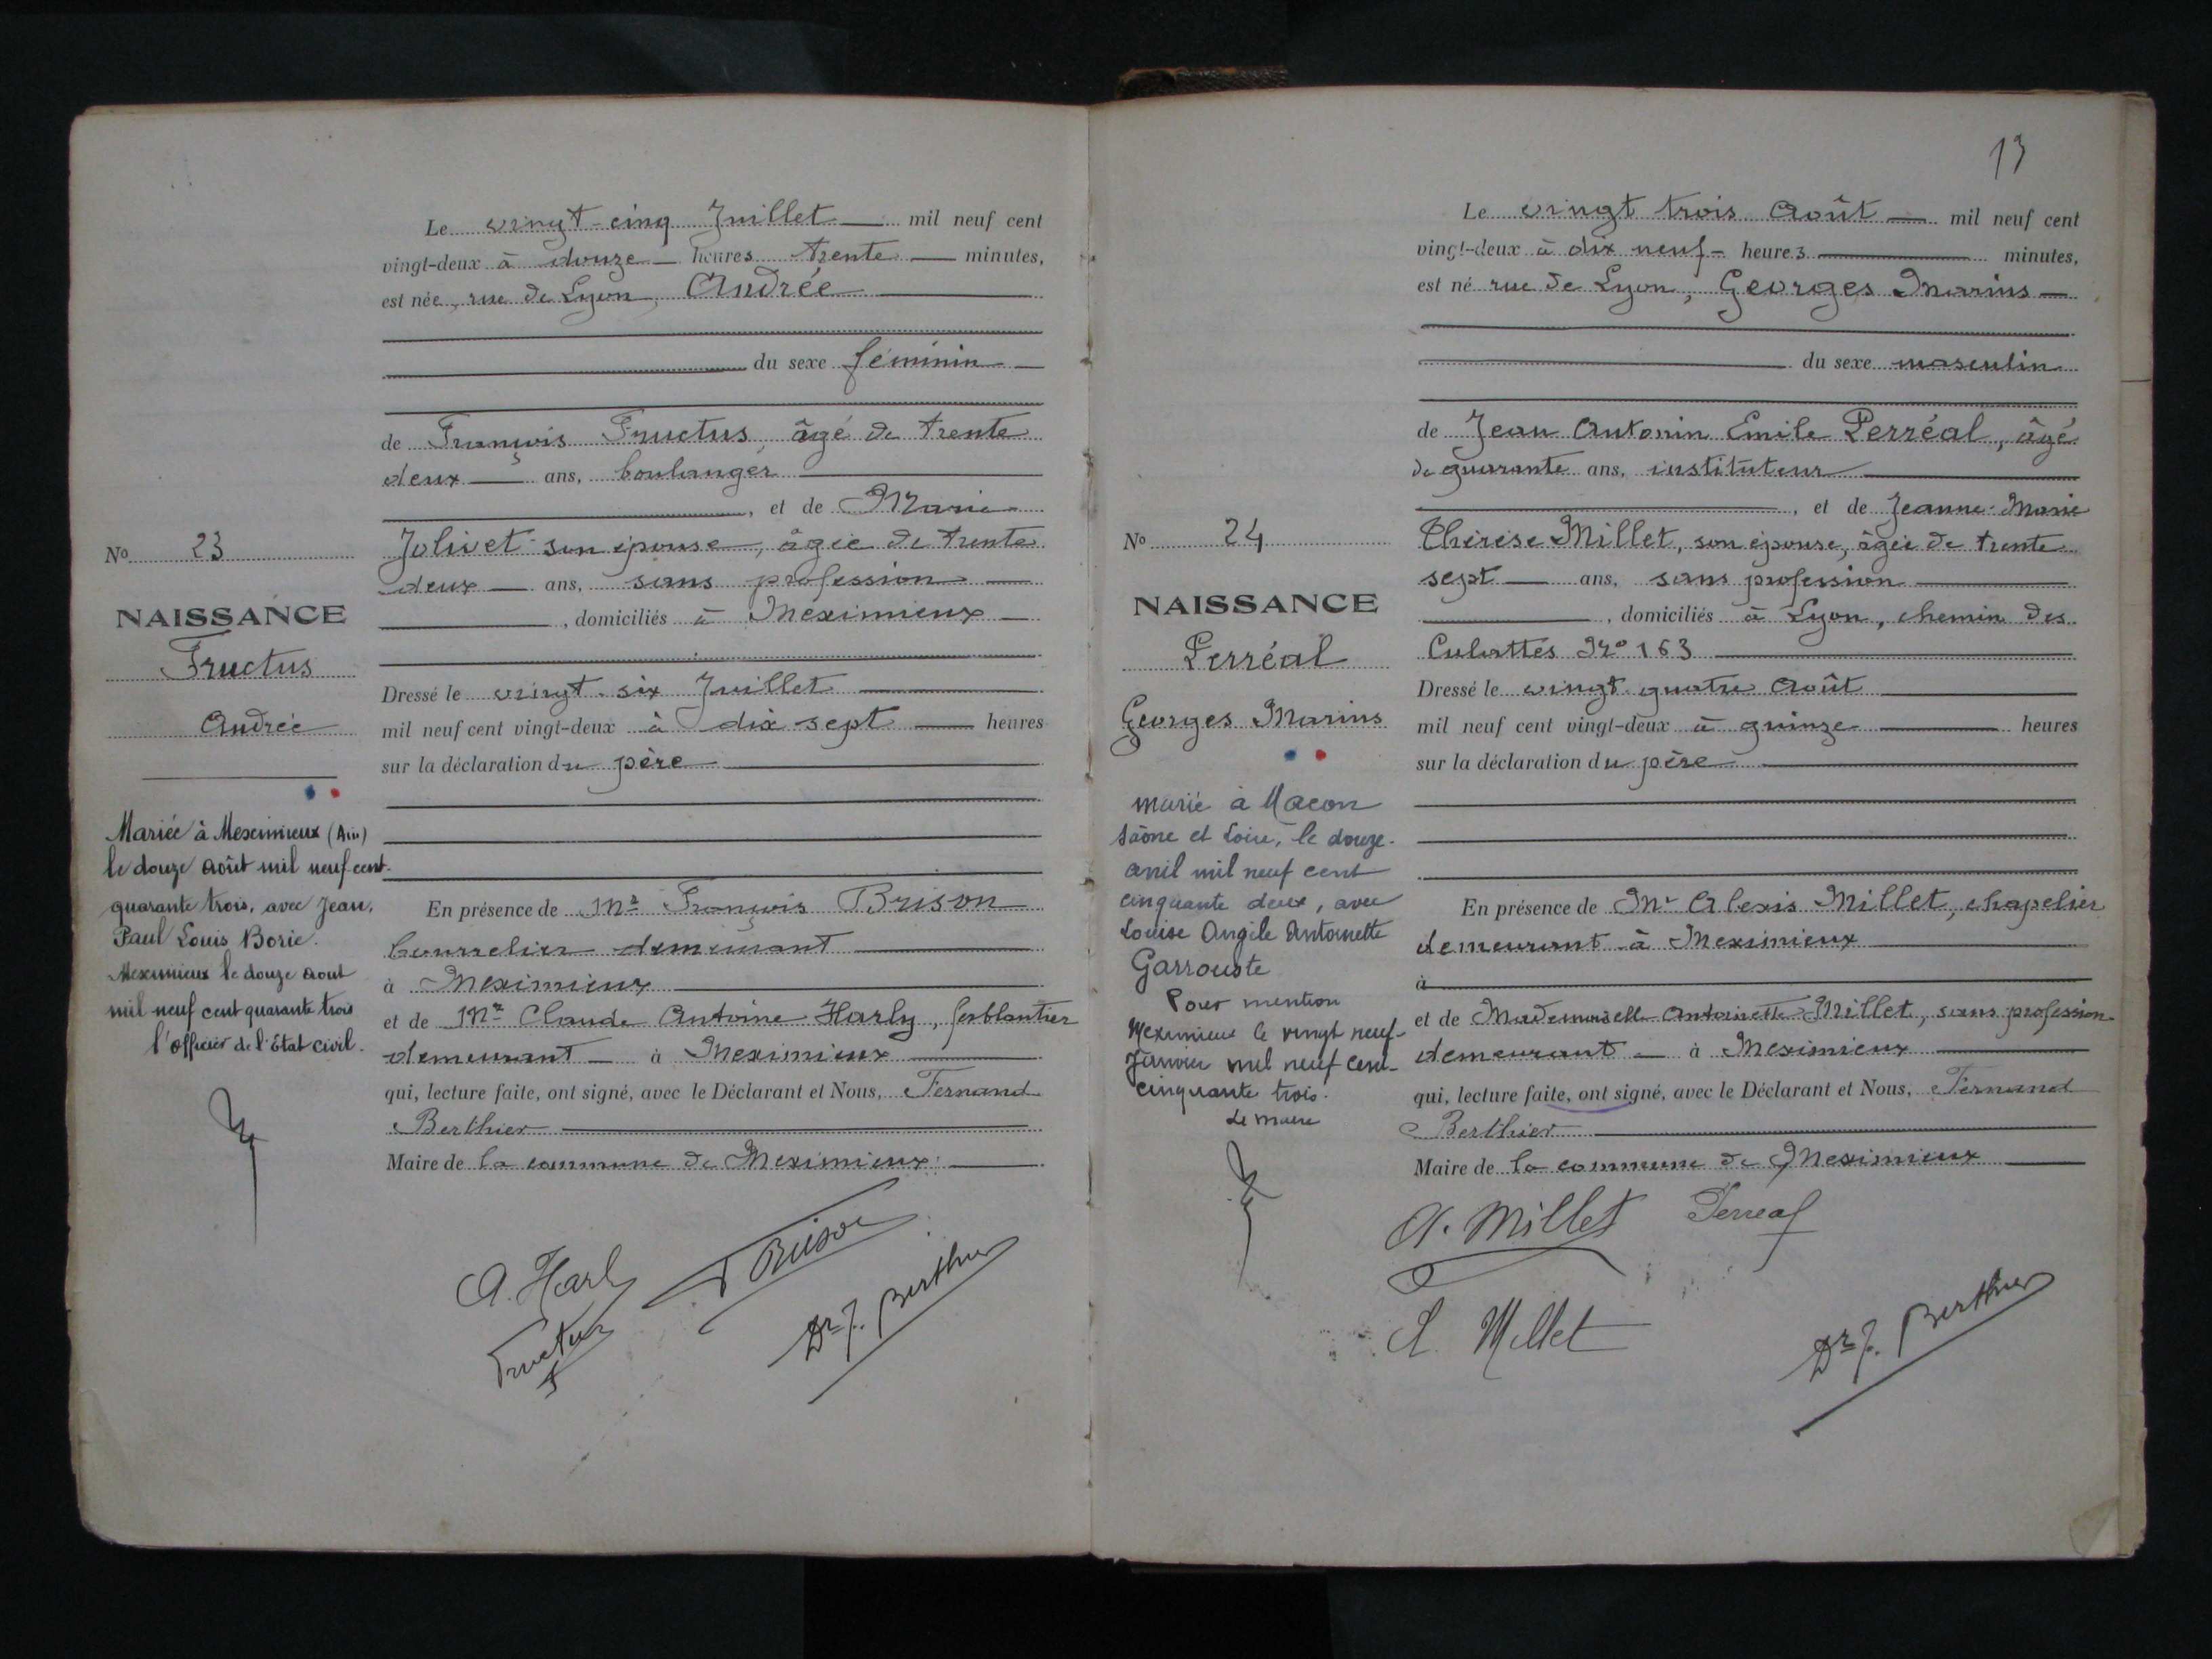 Le vingt-cinq Juillet mil neuf cent
vingt-deux à douze heures trente minutes,
est née, rue de Lyon, Andrée
du sexe féminin
de François Fructus, âgé de trente
deux ans, boulanger
, et de Marie
Jolivet son épouse, âgée de trente
deux ans, sans profession
, domiciliés à Meximieux
Dressé le vingt-six Juillet
mil neuf cent vingt-deux à dix sept heures
sur la déclaration du père
En présence de Mr François Brison
bourrelier demeurant
à Meximieux
et de Mr Claude Antoine Harly, ferblantier
demeurant à Meximieux
qui, lecture faite, ont signé, avec le Déclarant et Nous, Fernand
Berthier
Maire de la commune de Meximieux
A. Harly
Brison
Fructus
Dr F. Berthier
No 23
NAISSANCE
Fructus
Andrée
Mariée à Meximieux (Ain)
le douze août mil neuf cent
quarante trois, avec Jean,
Paul Louis Borie.
Meximieux le douze aout
mil neuf cent quarante trois
l'officier de l'Etat civil.
13
Le vingt trois Août mil neuf cent
vingt-deux à dix neuf heures minutes,
est né rue de Lyon, Georges Marius
du sexe masculin
de Jean Antonin Emile Perréal, âgé
de quarante ans, instituteur
, et de Jeanne-Marie
Thérèse Millet, son épouse, âgée de trente
sept ans, sans profession
, domiciliés à Lyon, chemin des
Culattes No 163
Dressé le vingt quatre Août
mil neuf cent vingt-deux à quinze heures
sur la déclaration du père
En présence de Mr Alexis Millet, chapelier
demeurant à Meximieux
à
et de Mademoiselle Antoinette Millet, sans profession
demeurant à Meximieux
qui, lecture faite, ont signé, avec le Déclarant et Nous, Fernand
Berthier
Maire de la commune de Meximieux
A. Millet
Perreal
A. Millet
Dr F. Berthier
No 24
NAISSANCE
Perréal
Georges Marius
marié à Macon
Saône et Loire, le douze
avril mil neuf cent
cinquante deux, avec
Louise Angèle Antoinette
Garrouste
Pour mention
Meximieux le vingt neuf
Janvier mil neuf cent
cinquante trois.
Le maire